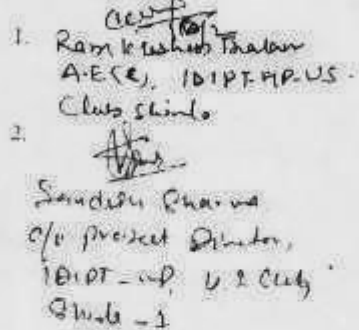 1.
Ram Krishan
A.E (C), IDIPT-HP-US
Club, Shimla
2.
Sandesh Sharma
C/o Project Director,
IDIPT-HP, U S Club
Shimla-1